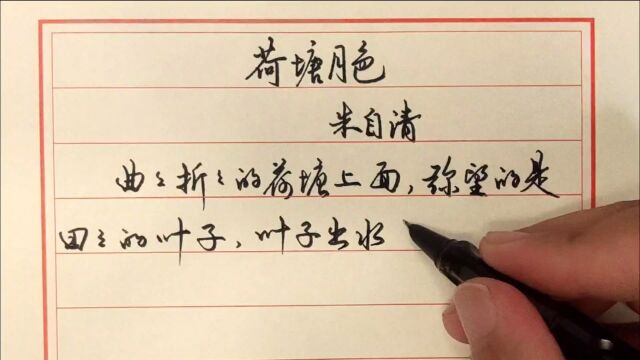 荷塘月色
朱自清
曲〻折〻的荷塘上面，弥望的是
田〻的叶子，叶子出水